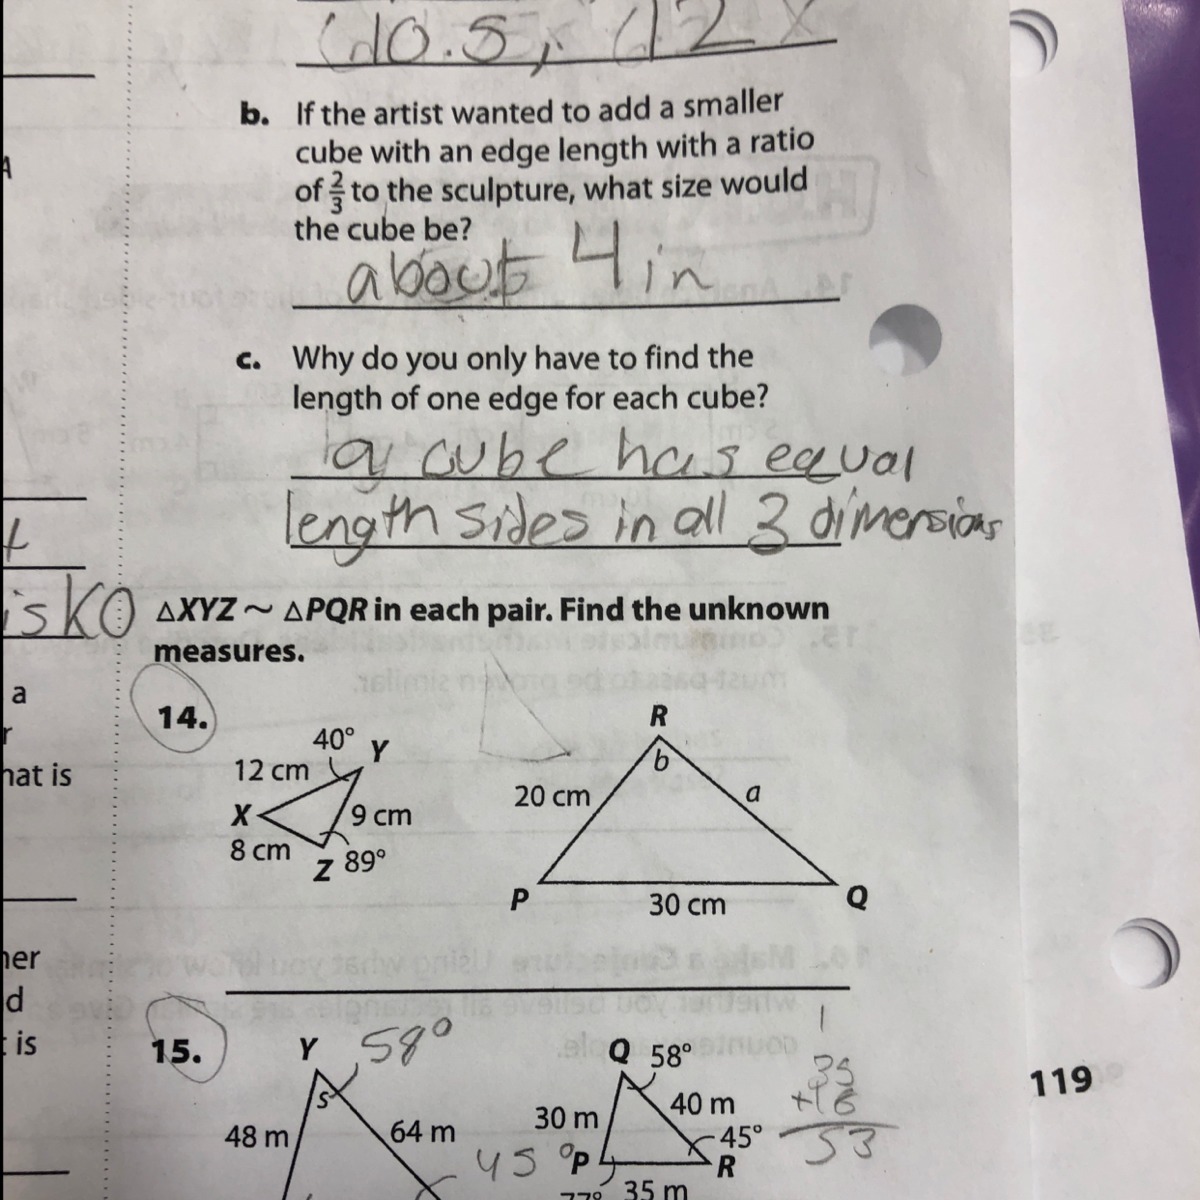 (10.5, (12 x
b. If the artist wanted to add a smaller
cube with an edge length with a ratio
of 2/3 to the sculpture, what size would
the cube be?
about 4 in
c. Why do you only have to find the
length of one edge for each cube?
a cube has equal
length sides in all 3 dimensions
is KO
△XYZ ~ △PQR in each pair. Find the unknown
measures.
a
hat is
14.
40°
Y
12 cm
X
9 cm
8 cm
Z
89°
R
b
20 cm
a
P
30 cm
Q
her
d
is
15.
Y
58°
s
48 m
64 m
45°
Q
58°
30 m
40 m
45°
P
R
77°
35 m
1
35
+18
53
119